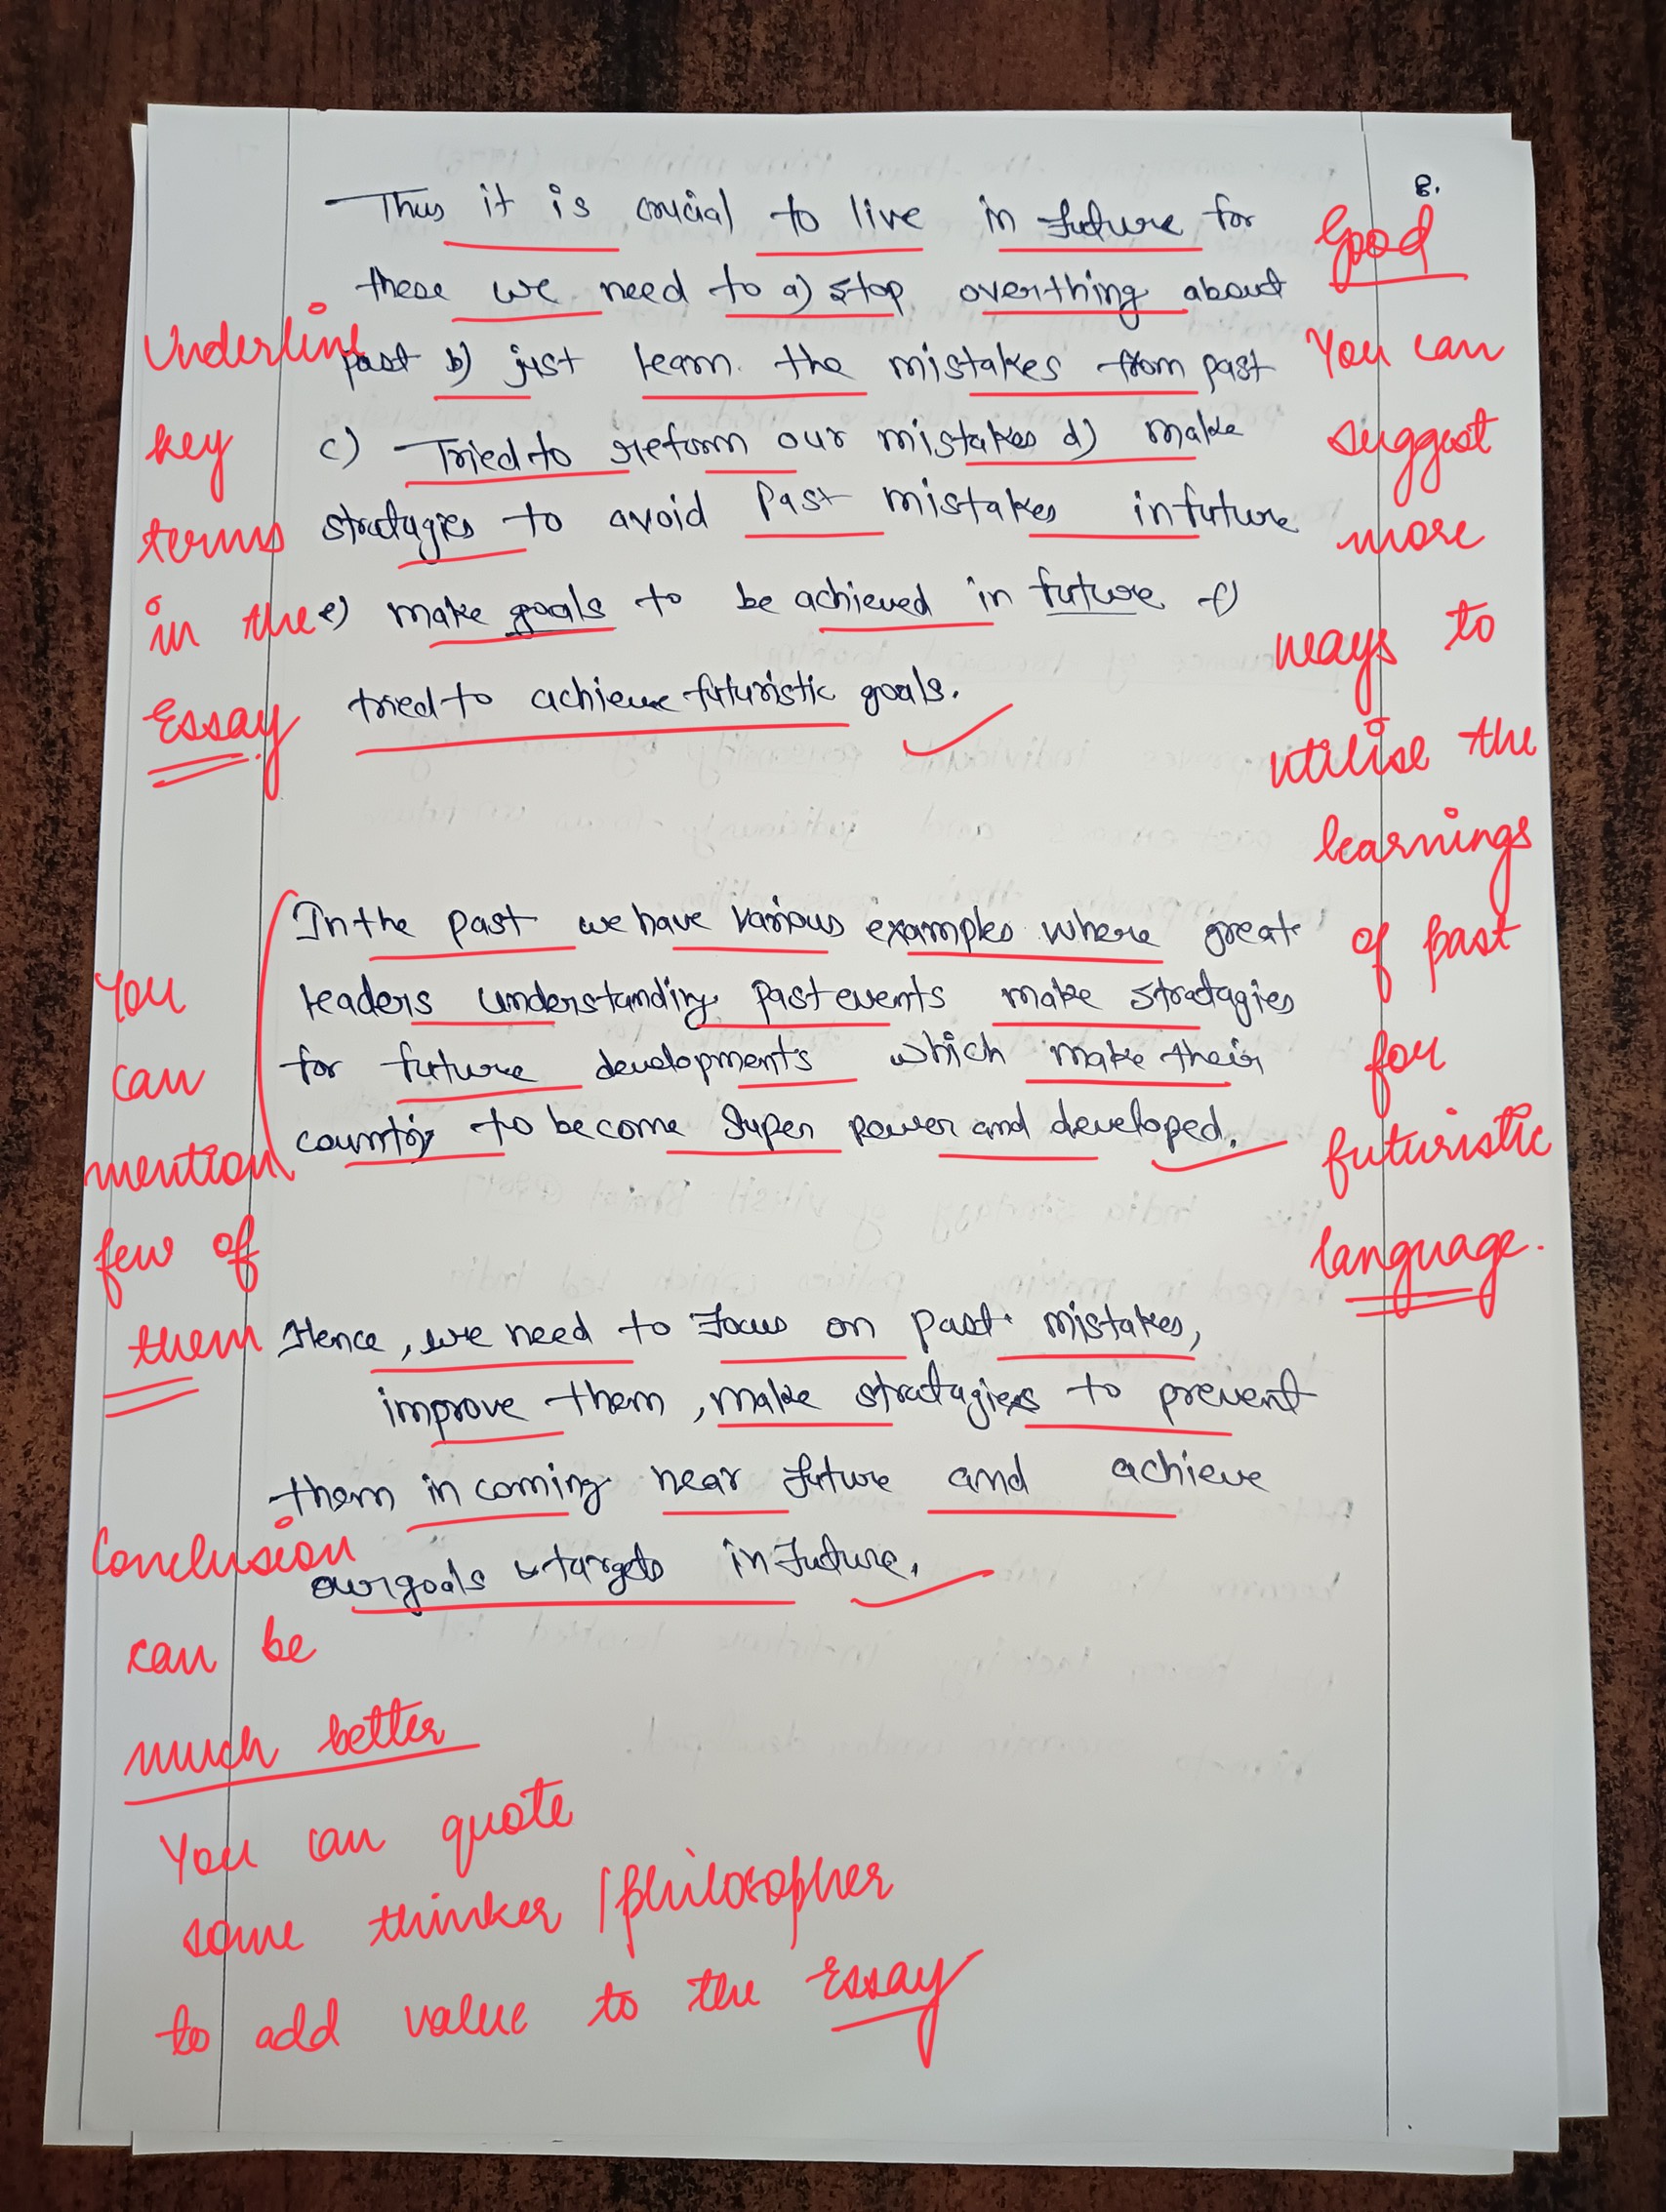 8.
Thus it is crucial to live in future for
these we need to a) stop overthing about
past b) just learn the mistakes from past
c) Tried to reform our mistakes d) make
stratagies to avoid Past mistakes in future
e) make goals to be achieved in future f)
tried to achieve futuristic goals.
Good
You can
suggest
more
ways to
utilise the
learnings
of past
for
futuristic
language.
Underline
key
terms
in the
Essay
In the past we have various examples where great
leaders understanding past events make stratagies
for future developments which make their
country to become Super power and developed.
You
can
mention
few of
them
Hence, we need to Focus on past mistakes,
improve them, make stratagies to prevent
them in coming near future and achieve
our goals & targets in future.
Conclusion
can be
much better
You can quote
some thinker / philosopher
to add value to the Essay